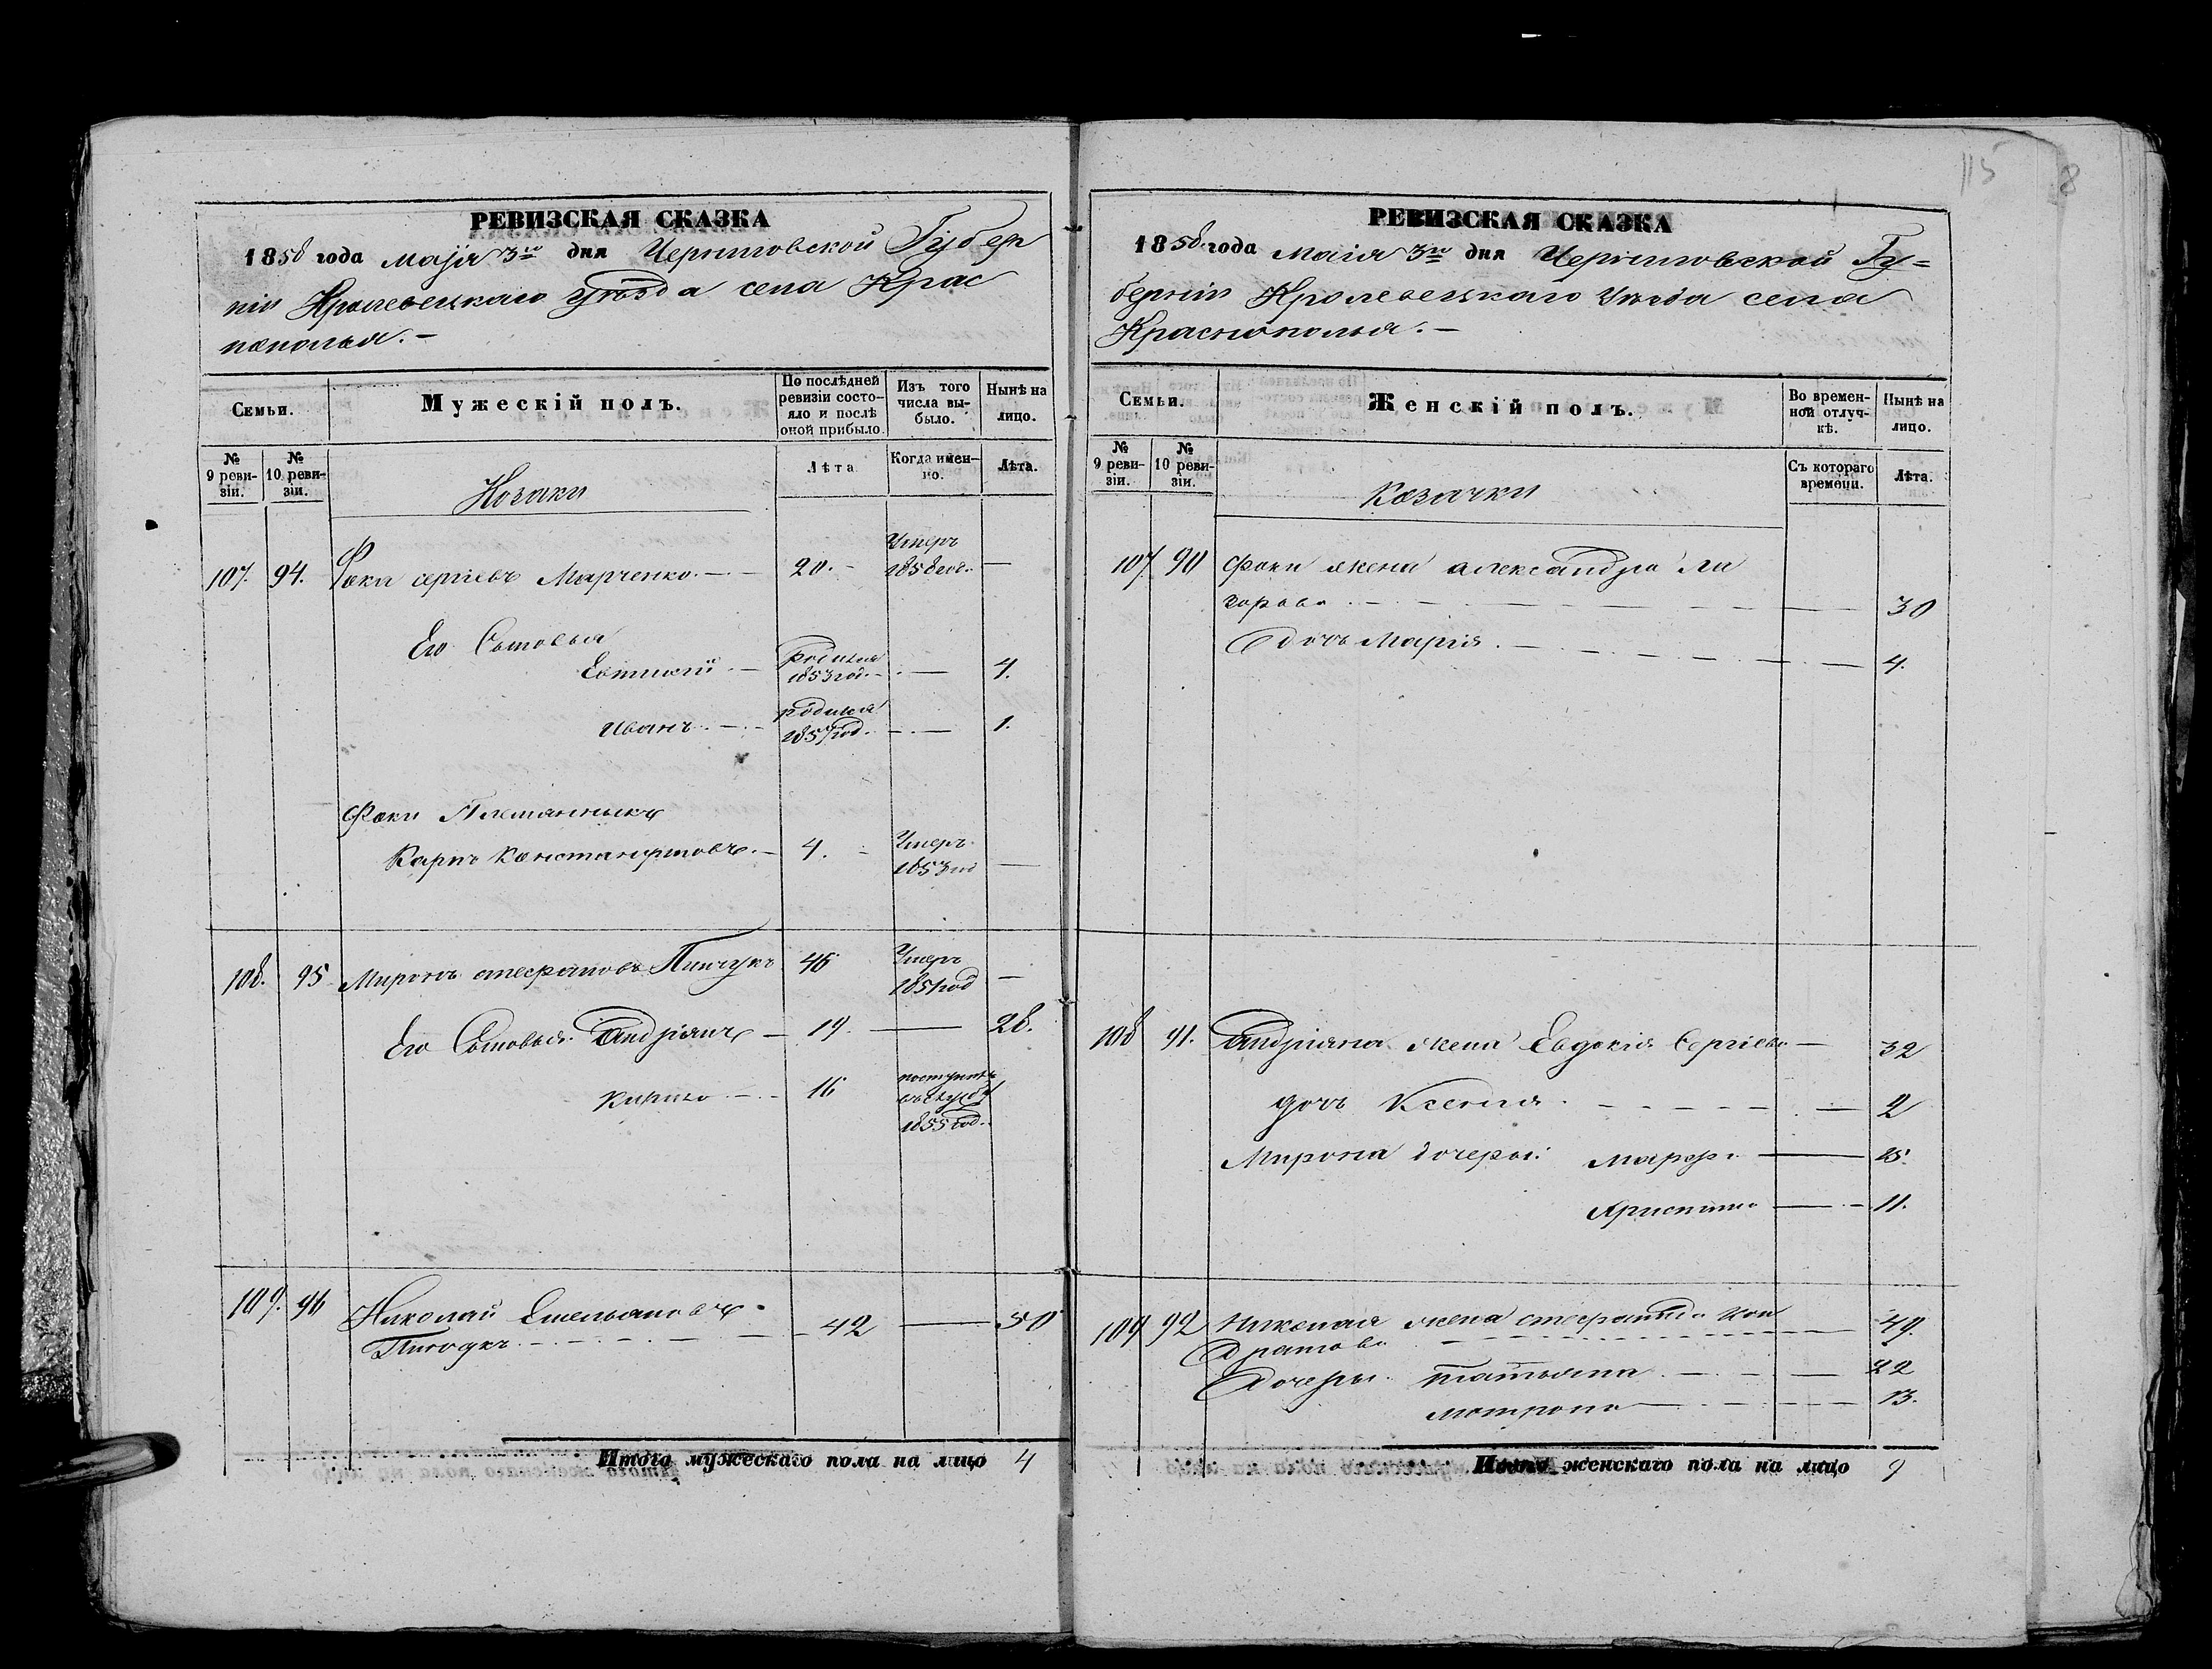 115
8
РЕВИЗСКАЯ СКАЗКА
1858 года маія 3го дня Черниговской Губер
ніи Кролевецкаго уѣзда села Крас
нополья.—
Семьи.
Мужескій полъ.
По послѣдней ревизіи состо-
яло и послѣ оной прибыло.
Изъ того числа вы-
было.
Нынѣ на лицо.
№ 9 реви-
зіи.
№ 10 реви-
зіи.
Козаки
Лѣта
Когда имен-
но.
Лѣта.
107. 94. Фока сергіевъ Марченко.— 20.- Умеръ —
1858 год.
Его Сыновья
Евтихій — родился 1853 год. — 4.
Иванъ — родился 1857 год. — 1.
Фоки Племянникъ
Карпъ Константиновъ.— 4. Умеръ 1853 год —
108. 95 Миронъ стефановъ Пинчукъ 46 Умеръ 1851 год —
Его Сыновья Андріянъ — 19. — 28.
Кирило — 16 поступилъ въ службу 1855 год.
109. 96 Николай Емельяновъ
42 — 50
Итого мужескаго пола на лицо 4
РЕВИЗСКАЯ СКАЗКА
1858 года маія 3го дня Черниговской Гу=
берніи Кролевецкаго уѣзда села
Краснополья.—
Семьи.
Женскій полъ.
Во времен-
ной отлуч-
кѣ.
Нынѣ на лицо.
№ 9 реви-
зіи.
№ 10 реви-
зіи.
Козачки
Съ котораго времени.
Лѣта.
107 90 Фоки жена александра
30
дочь Марія — 4.
108 91. Андріяна жена Евдокія Сергіева — 32
дочь Ксенія — 2
Мирона дочери: Марфа — 15.
Христина — 11.
109 92 Николая жена стефанида Кон
дратова — 49.
Дочери татьяна — 22
мотрона — 13.
Итого женскаго пола на лицо 9